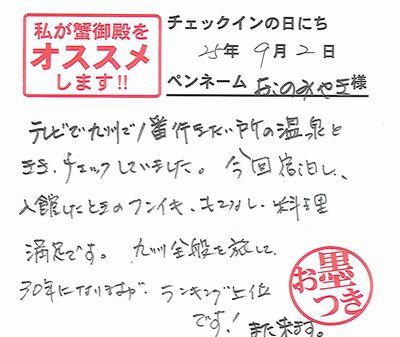 私が蟹御殿を
オススメ
します!!
チェックインの日にち
25年 9月 2日
ペンネーム おこのみやき様
テレビで九州で1番行きたい所の温泉と
きき、チェックしていました。 今回宿泊し、
入館したときのフンイキ、もてなし、料理
満足です。 九州全般を旅して
30年になりますが、ランキング上位
です! また来ます。
お墨
つき